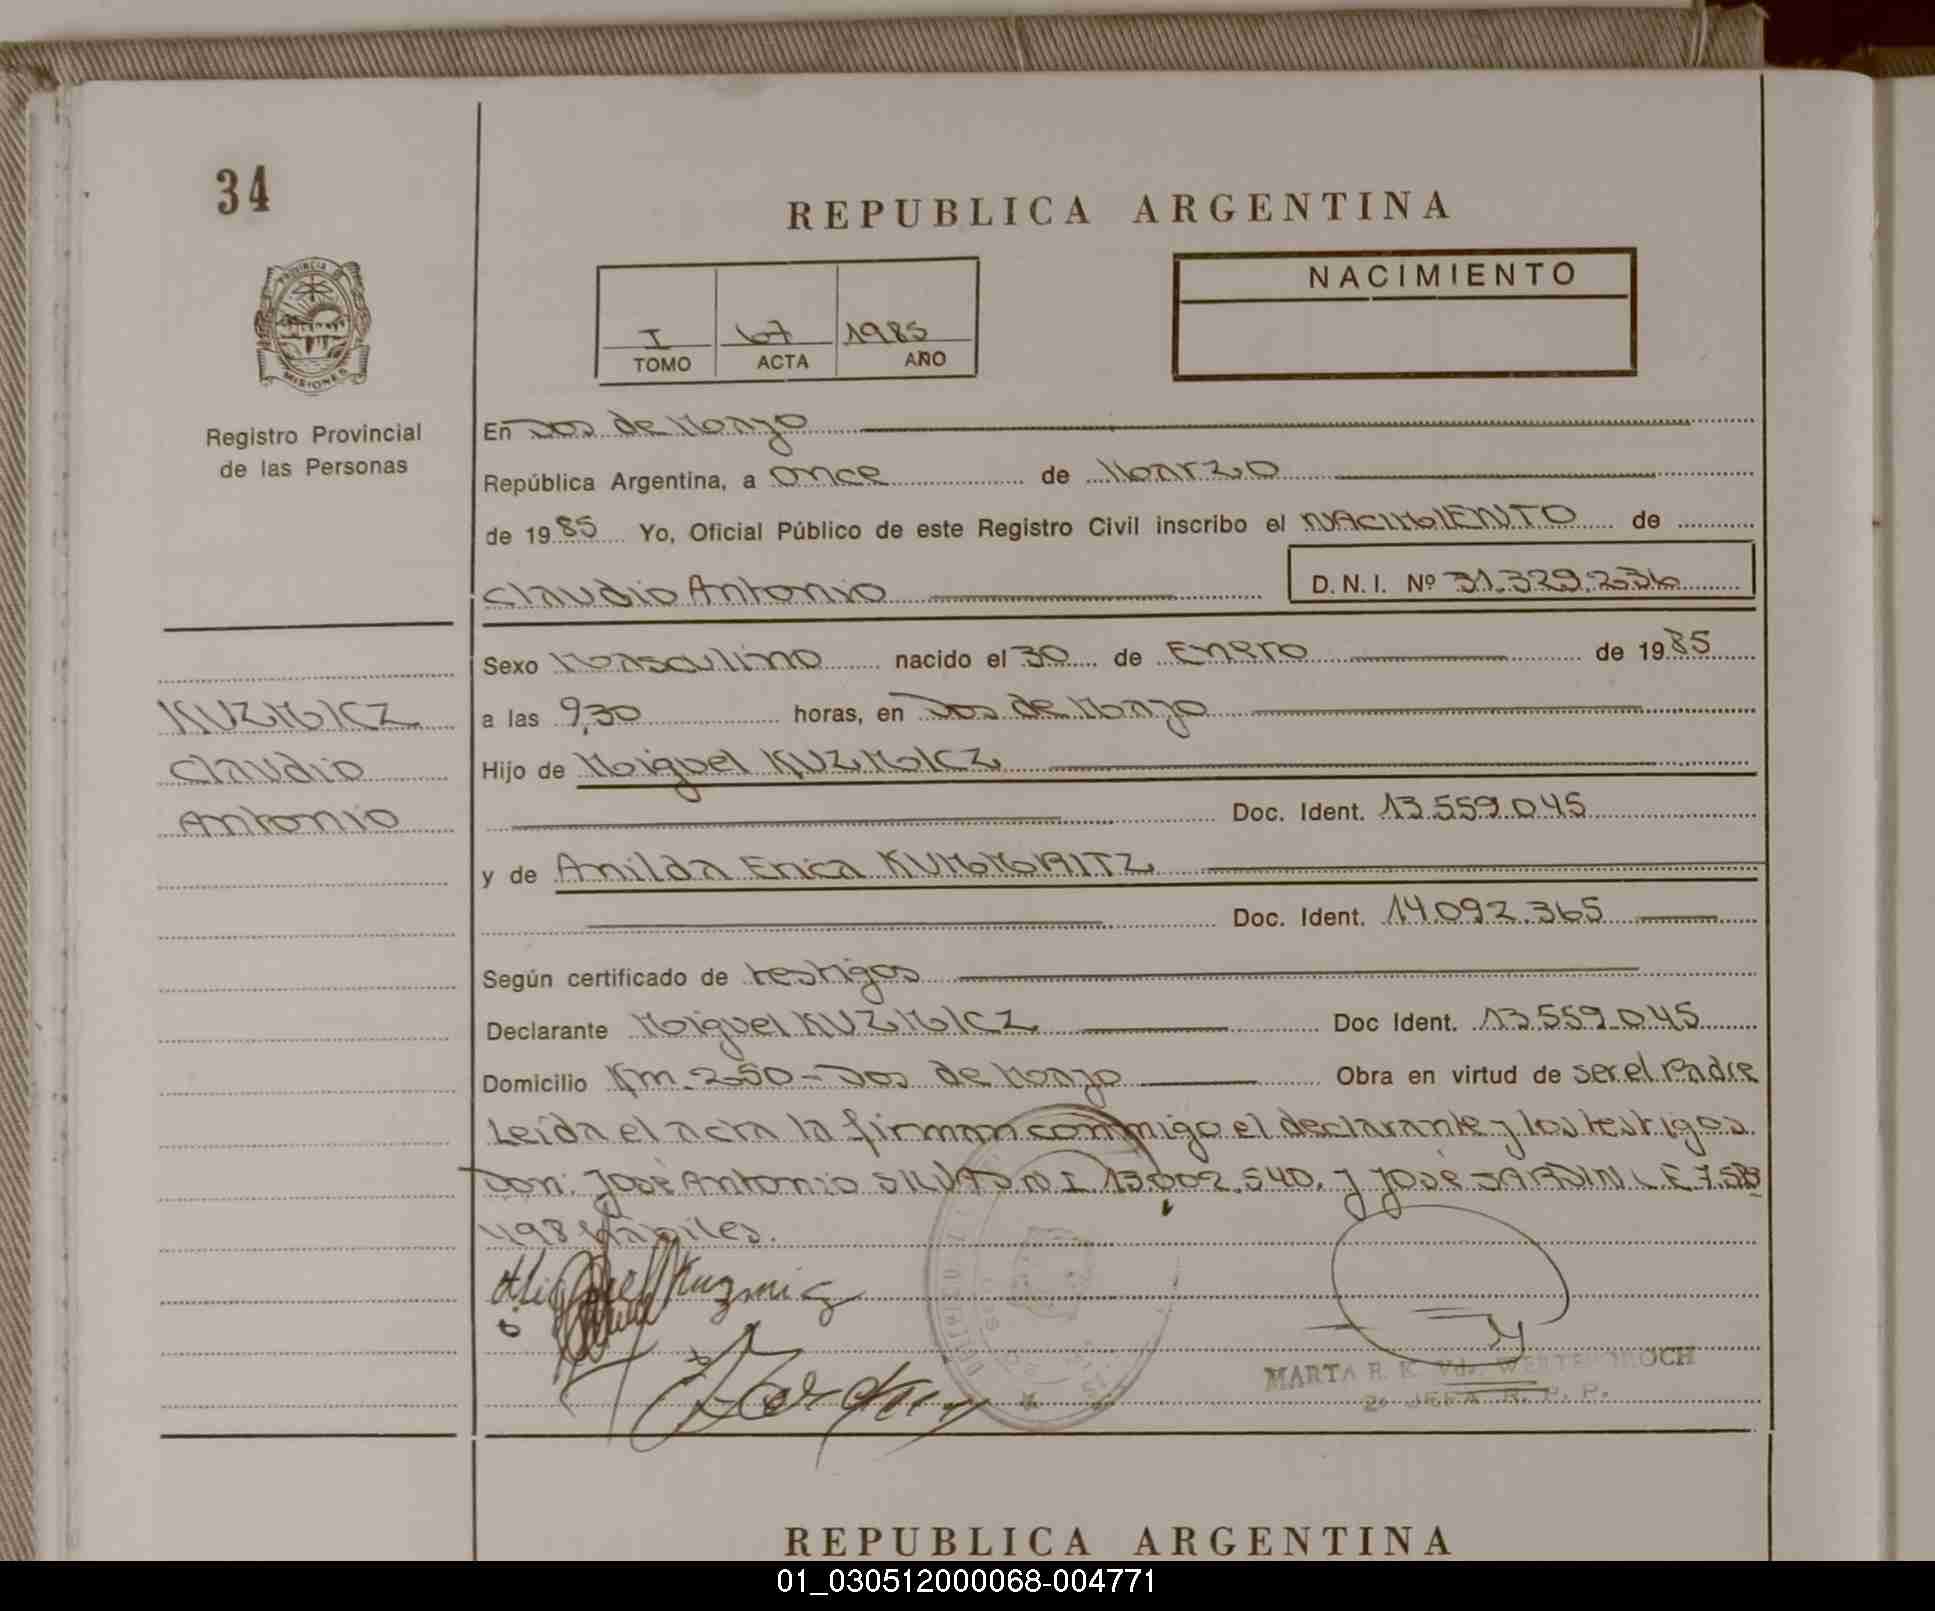 34
REPUBLICA ARGENTINA
NACIMIENTO
I 67 1985
TOMO ACTA AÑO
PROVINCIA DE
MISIONES
Registro Provincial
de las Personas
En Dos de Mayo
República Argentina, a once de Marzo
de 1985 Yo, Oficial Público de este Registro Civil inscribo el NACIMIENTO de
Claudio Antonio D.N.I. Nº 31.329.236
Sexo Masculino nacido el 30 de Enero de 1985
KUZMICZ
Claudio
Antonio
a las 9,30 horas, en Dos de Mayo
Hijo de Miguel KUZMICZ
Doc. Ident. 13.559.045
y de Anilda Erica KUMMRITZ
Doc. Ident. 14.092.365
Según certificado de testigos
Declarante Miguel KUZMICZ Doc Ident. 13.559.045
Domicilio Km. 250 - Dos de Mayo Obra en virtud de ser el Padre
Leída el acta la firman conmigo el declarante y los testigos
Don: José Antonio SILVA D.N.I 13.002.540. y José JARDIN L.E 7.5
498 Hábiles.
Miguel Kuzmicz
MARTA R. K. Vda.
2º JEFA R. P. P.
REPUBLICA ARGENTINA
01_030512000068-004771